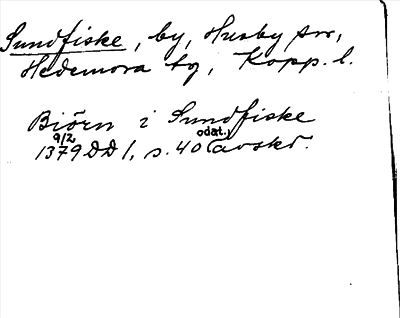 Sundfiske, by, Husby sn,
Hedemora tg, Kopp. l.
Biörn i Sundfiske
9/2 odat.)
1379 DD 1, s. 40 (avskr.